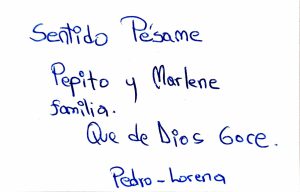 Sentido Pésame
Pepito y Marlene
familia.
Que de Dios Goce.
Pedro - Lorena